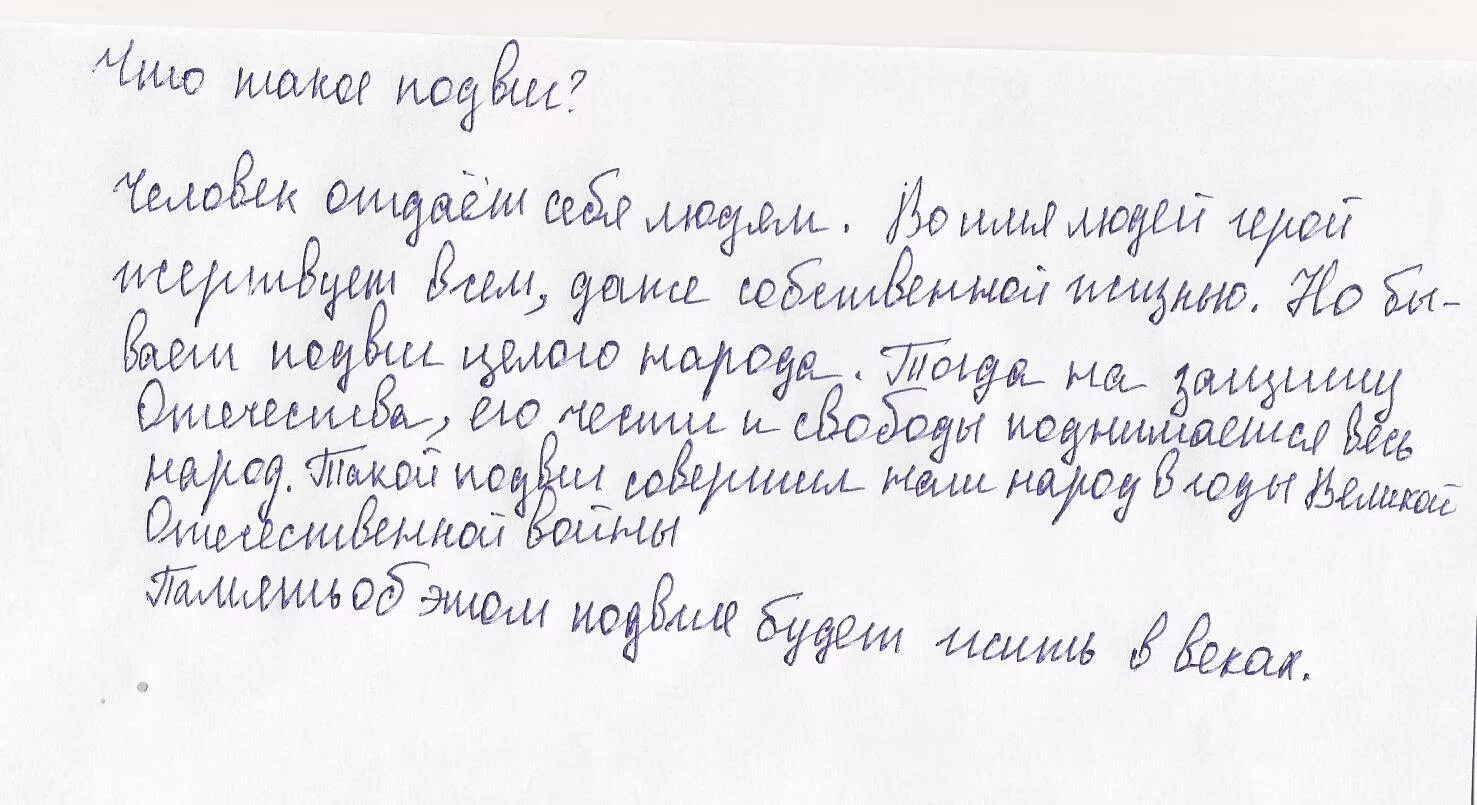 Что такое подвиг?
Человек отдаёт себя людям. Во имя людей герой
жертвует всем, даже собственной жизнью. Но бы-
вает подвиг целого народа. Тогда на защиту
Отечества, его чести и свободы поднимается весь
народ. Такой подвиг совершил наш народ в годы Великой
Отечественной войны
Память об этом подвиге будет жить в веках.